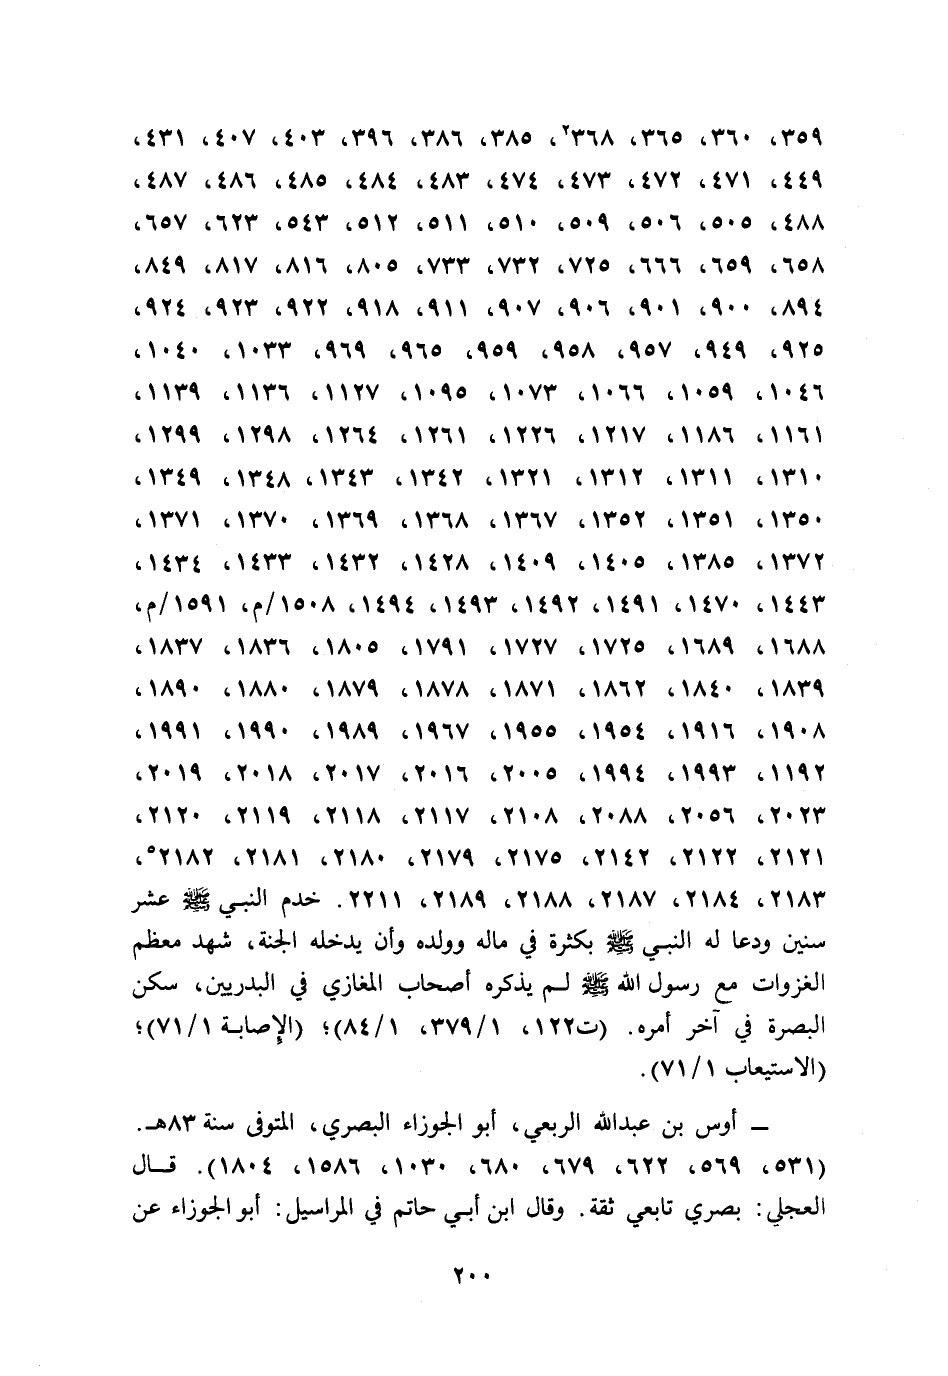 ٣٥٩، ٣٦٠، ٣٦٥، ٣٦٨٢، ٣٨٥، ٣٨٦، ٣٩٦، ٤٠٣، ٤٠٧، ٤٣١،
٤٤٩، ٤٧١، ٤٧٢، ٤٧٣، ٤٧٤، ٤٨٣، ٤٨٤، ٤٨٥، ٤٨٦، ٤٨٧،
٤٨٨، ٥٠٥، ٥٠٦، ٥٠٩، ٥١٠، ٥١١، ٥١٢، ٥٤٣، ٦٢٣، ٦٥٧،
٦٥٨، ٦٥٩، ٦٦٦، ٧٢٥، ٧٣٢، ٧٣٣، ٨٠٥، ٨١٦، ٨١٧، ٨٤٩،
٨٩٤، ٩٠٠، ٩٠١، ٩٠٦، ٩٠٧، ٩١١، ٩١٨، ٩٢٢، ٩٢٣، ٩٢٤،
٩٢٥، ٩٤٩، ٩٥٧، ٩٥٨، ٩٥٩، ٩٦٥، ٩٦٩، ١٠٣٣، ١٠٤٠،
١٠٤٦، ١٠٥٩، ١٠٦٦، ١٠٧٣، ١٠٩٥، ١١٢٧، ١١٣٦، ١١٣٩،
١١٦١، ١١٨٦، ١٢١٧، ١٢٢٦، ١٢٦١، ١٢٦٤، ١٢٩٨، ١٢٩٩،
١٣١٠، ١٣١١، ١٣١٢، ١٣٢١، ١٣٤٢، ١٣٤٣، ١٣٤٨، ١٣٤٩،
١٣٥٠، ١٣٥١، ١٣٥٢، ١٣٦٧، ١٣٦٨، ١٣٦٩، ١٣٧٠، ١٣٧١،
١٣٧٢، ١٣٨٥، ١٤٠٥، ١٤٠٩، ١٤٢٨، ١٤٣٢، ١٤٣٣، ١٤٣٤،
١٤٤٣، ١٤٧٠، ١٤٩١، ١٤٩٢، ١٤٩٣، ١٤٩٤، ١٥٠٨/م، ١٥٩١/م،
١٦٨٨، ١٦٨٩، ١٧٢٥، ١٧٢٧، ١٧٩١، ١٨٠٥، ١٨٣٦، ١٨٣٧،
١٨٣٩، ١٨٤٠، ١٨٦٢، ١٨٧١، ١٨٧٨، ١٨٧٩، ١٨٨٠، ١٨٩٠،
١٩٠٨، ١٩١٦، ١٩٥٤، ١٩٥٥، ١٩٦٧، ١٩٨٩، ١٩٩٠، ١٩٩١،
١١٩٢، ١٩٩٣، ١٩٩٤، ٢٠٠٥، ٢٠١٦، ٢٠١٧، ٢٠١٨، ٢٠١٩،
٢٠٢٣، ٢٠٥٦، ٢٠٨٨، ٢١٠٨، ٢١١٧، ٢١١٨، ٢١١٩، ٢١٢٠،
٢١٢١، ٢١٢٢، ٢١٤٢، ٢١٧٥، ٢١٧٩، ٢١٨٠، ٢١٨١، ٢١٨٢٥،
٢١٨٣، ٢١٨٤، ٢١٨٧، ٢١٨٨، ٢١٨٩، ٢٢١١. خدم النبي ﷺ عشر
سنين ودعا له النبي ﷺ بكثرة في ماله وولده وأن يدخله الجنة، شهد معظم
الغزوات مع رسول الله ﷺ لم يذكره أصحاب المغازي في البدريين، سكن
البصرة في آخر أمره. (ت١٢٢، ٣٧٩/١، ٨٤/١)؛ (الإصابة ٧١/١)؛
(الاستيعاب ٧١/١).
ــ أوس بن عبدالله الربعي، أبو الجوزاء البصري، المتوفى سنة ٨٣هـ.
(٥٣١، ٥٦٩، ٦٢٢، ٦٧٩، ٦٨٠، ١٠٣٠، ١٥٨٦، ١٨٠٤). قال
العجلي: بصري تابعي ثقة. وقال ابن أبي حاتم في المراسيل: أبو الجوزاء عن
٢٠٠